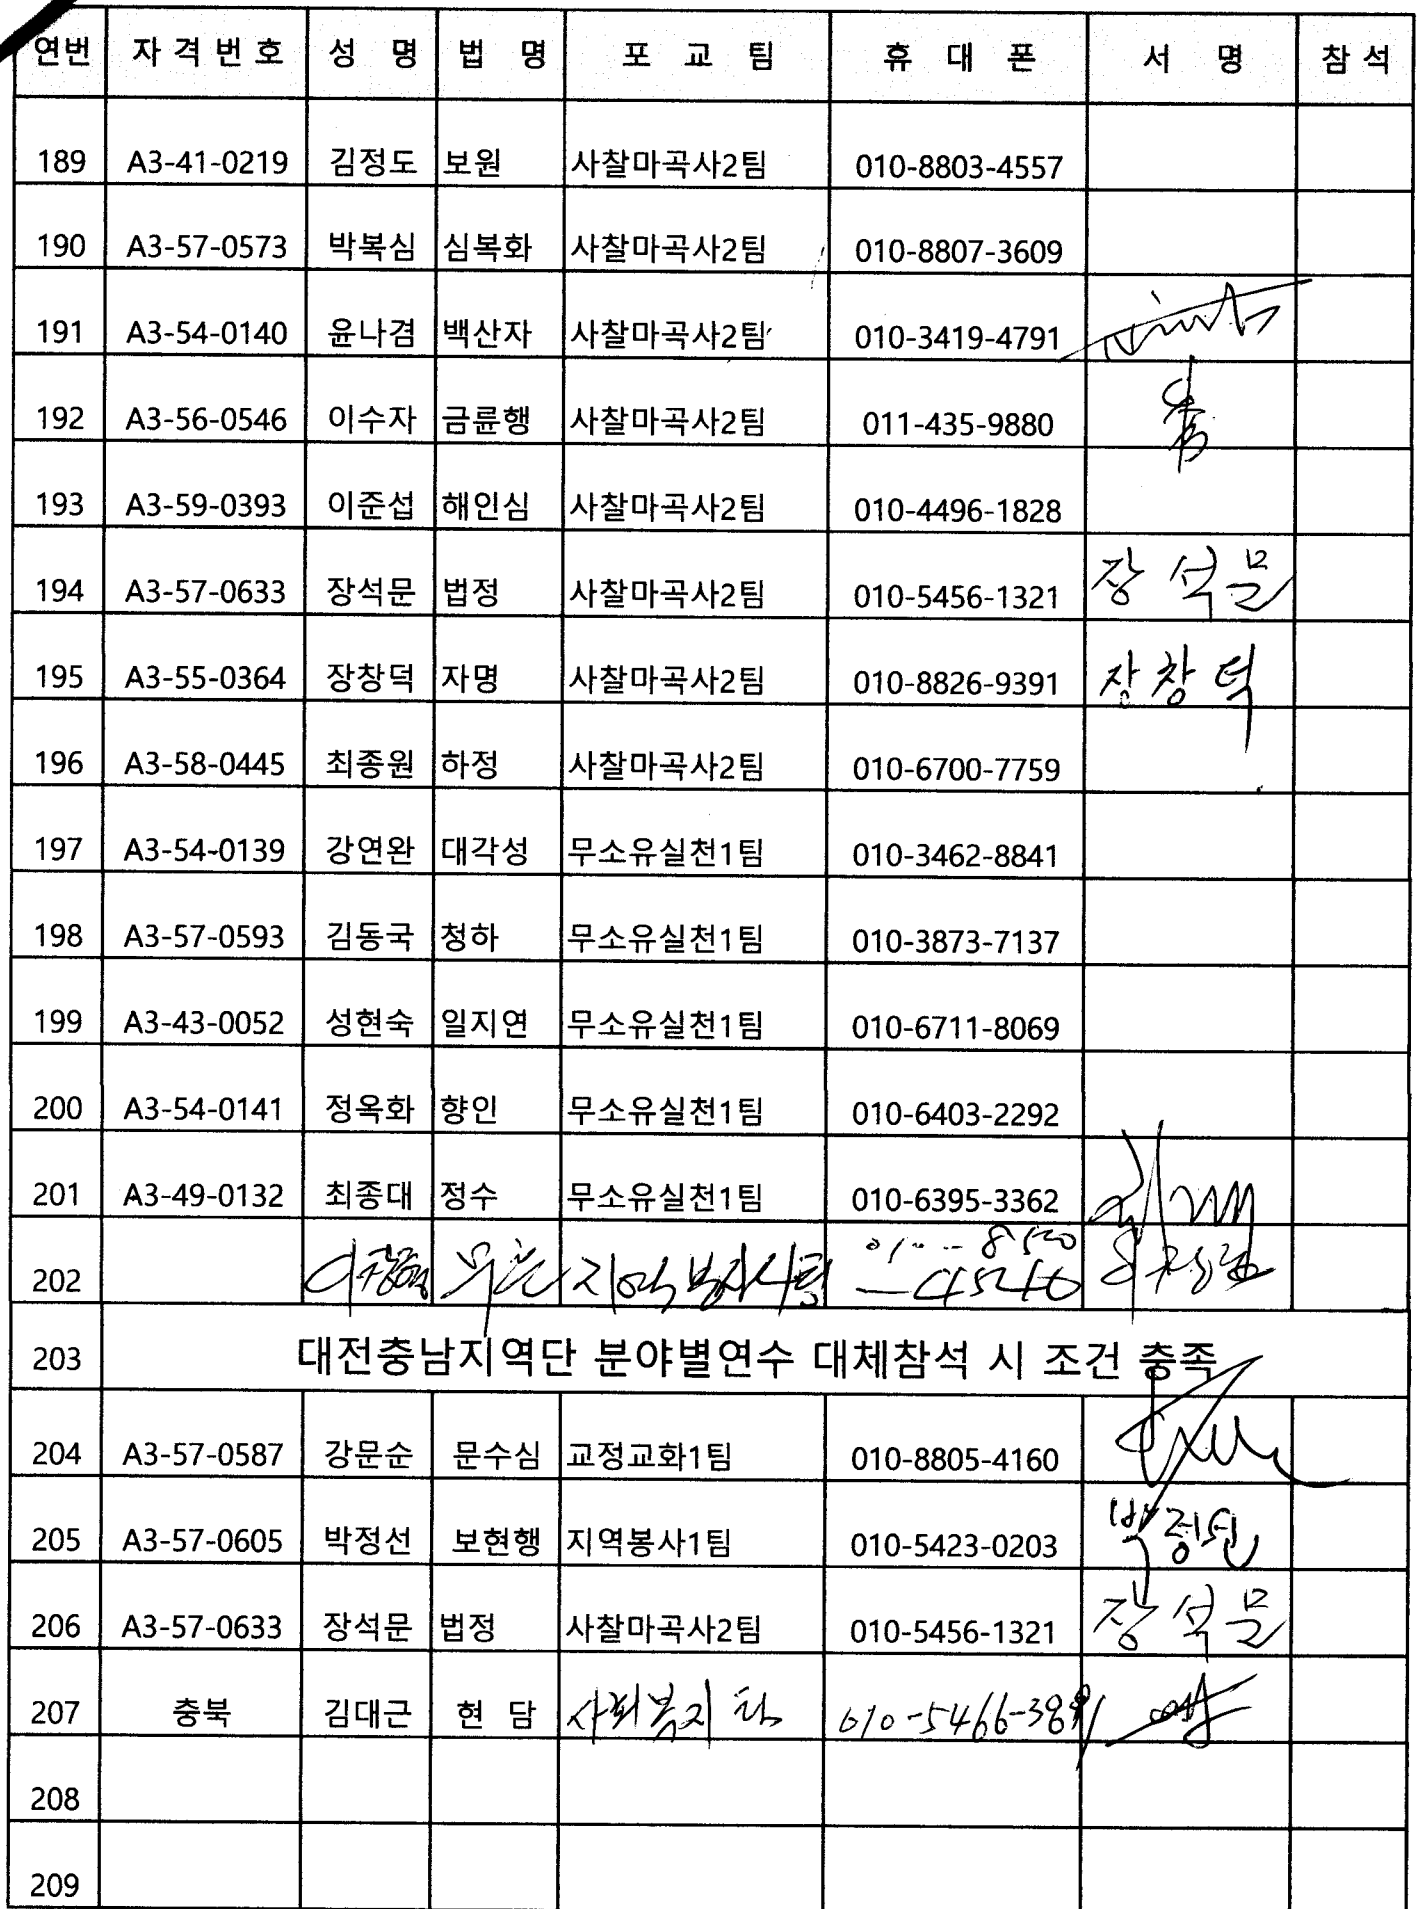 연번 자격번호 성 명 법 명 포 교 팀 휴 대 폰 서 명 참석
189 A3-41-0219 김정도 보원 사찰마곡사2팀 010-8803-4557
190 A3-57-0573 박복심 심복화 사찰마곡사2팀 010-8807-3609
191 A3-54-0140 윤나겸 백산자 사찰마곡사2팀 010-3419-4791
192 A3-56-0546 이수자 금륜행 사찰마곡사2팀 011-435-9880
193 A3-59-0393 이준섭 해인심 사찰마곡사2팀 010-4496-1828
194 A3-57-0633 장석문 법정 사찰마곡사2팀 010-5456-1321 장석문
195 A3-55-0364 장창덕 자명 사찰마곡사2팀 010-8826-9391 장창덕
196 A3-58-0445 최종원 하정 사찰마곡사2팀 010-6700-7759
197 A3-54-0139 강연완 대각성 무소유실천1팀 010-3462-8841
198 A3-57-0593 김동국 청하 무소유실천1팀 010-3873-7137
199 A3-43-0052 성현숙 일지연 무소유실천1팀 010-6711-8069
200 A3-54-0141 정옥화 향인 무소유실천1팀 010-6403-2292
201 A3-49-0132 최종대 정수 무소유실천1팀 010-6395-3362
202 지역봉사4팀
203 대전충남지역단 분야별연수 대체참석 시 조건 충족
204 A3-57-0587 강문순 문수심 교정교화1팀 010-8805-4160
205 A3-57-0605 박정선 보현행 지역봉사1팀 010-5423-0203 박정선
206 A3-57-0633 장석문 법정 사찰마곡사2팀 010-5456-1321 장석문
207 충북 김대근 현 담 사회복지
208
209